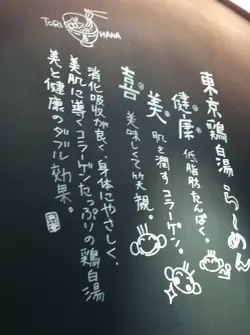 TORI HANA
東京鶏白湯らーめん
健・康 低脂肪たんぱく。
美 肌を潤すコラーゲン。
喜 美味しくて笑顔。
消化吸収が良く、身体にやさしく、
美肌に導くコラーゲンたっぷりの鶏白湯
美と健康のダブル効果。